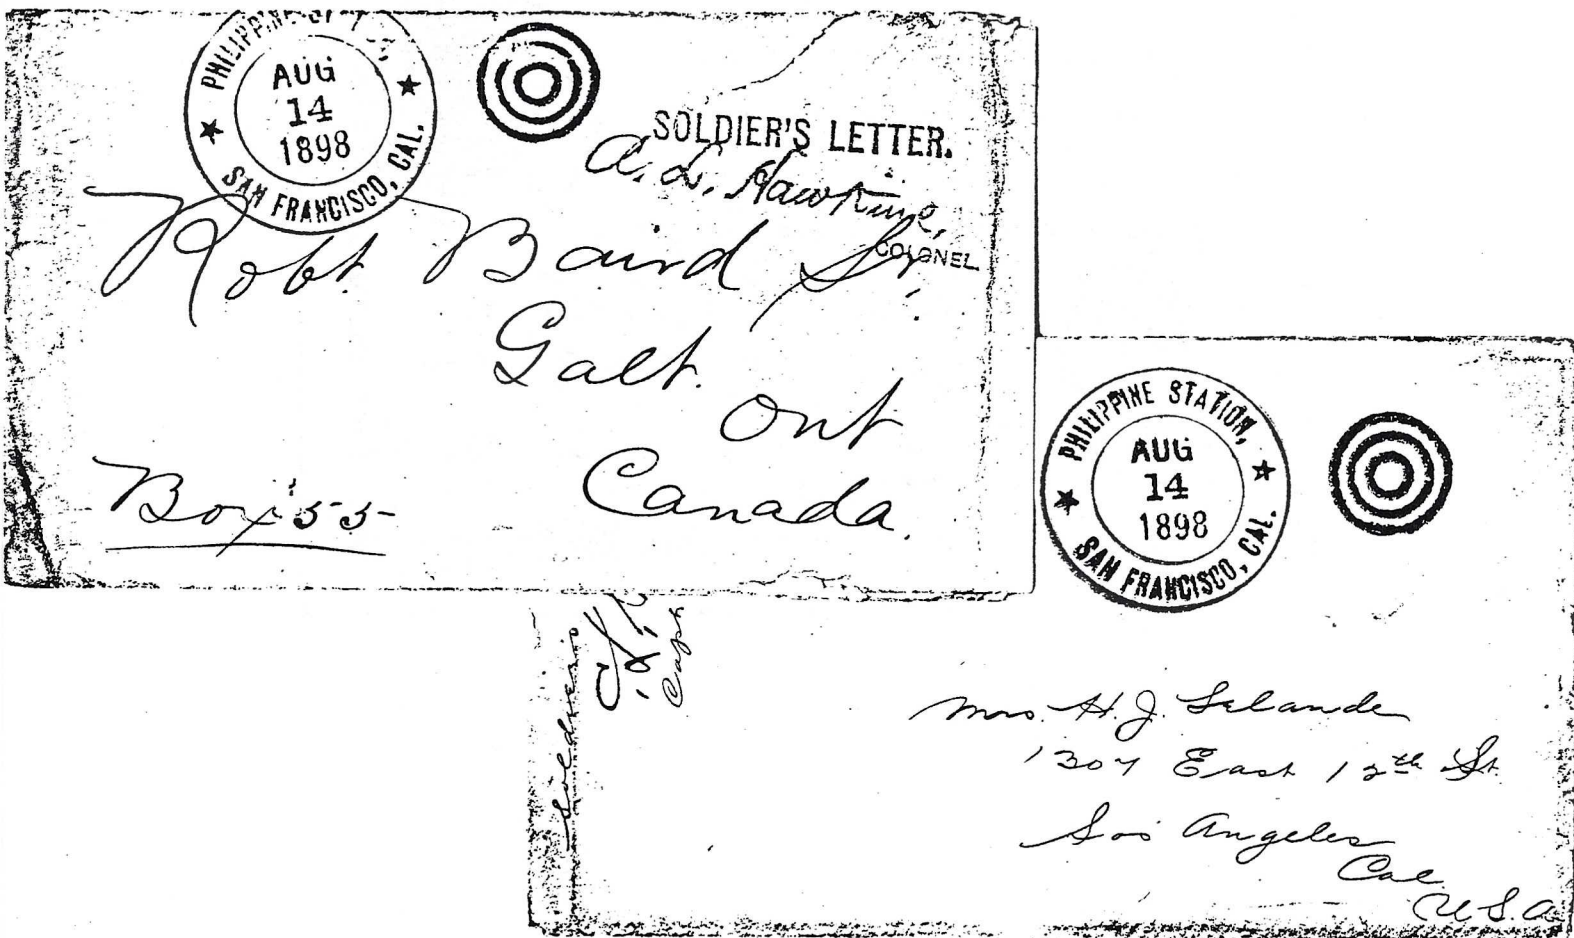 PHILIPPINE ST
AUG
14
1898
SAN FRANCISCO, CAL.
SOLDIER'S LETTER.
A. L. Hawkins,
COLONEL
Robt. Baird Sr.
Galt.
Ont
Canada.
Box 55
PHILIPPINE STATION,
AUG
14
1898
SAN FRANCISCO, CAL.
Soldiers
Capt
Mrs. H. J. Selander
1307 East 12th St
Los Angeles
Cal
U.S.A.